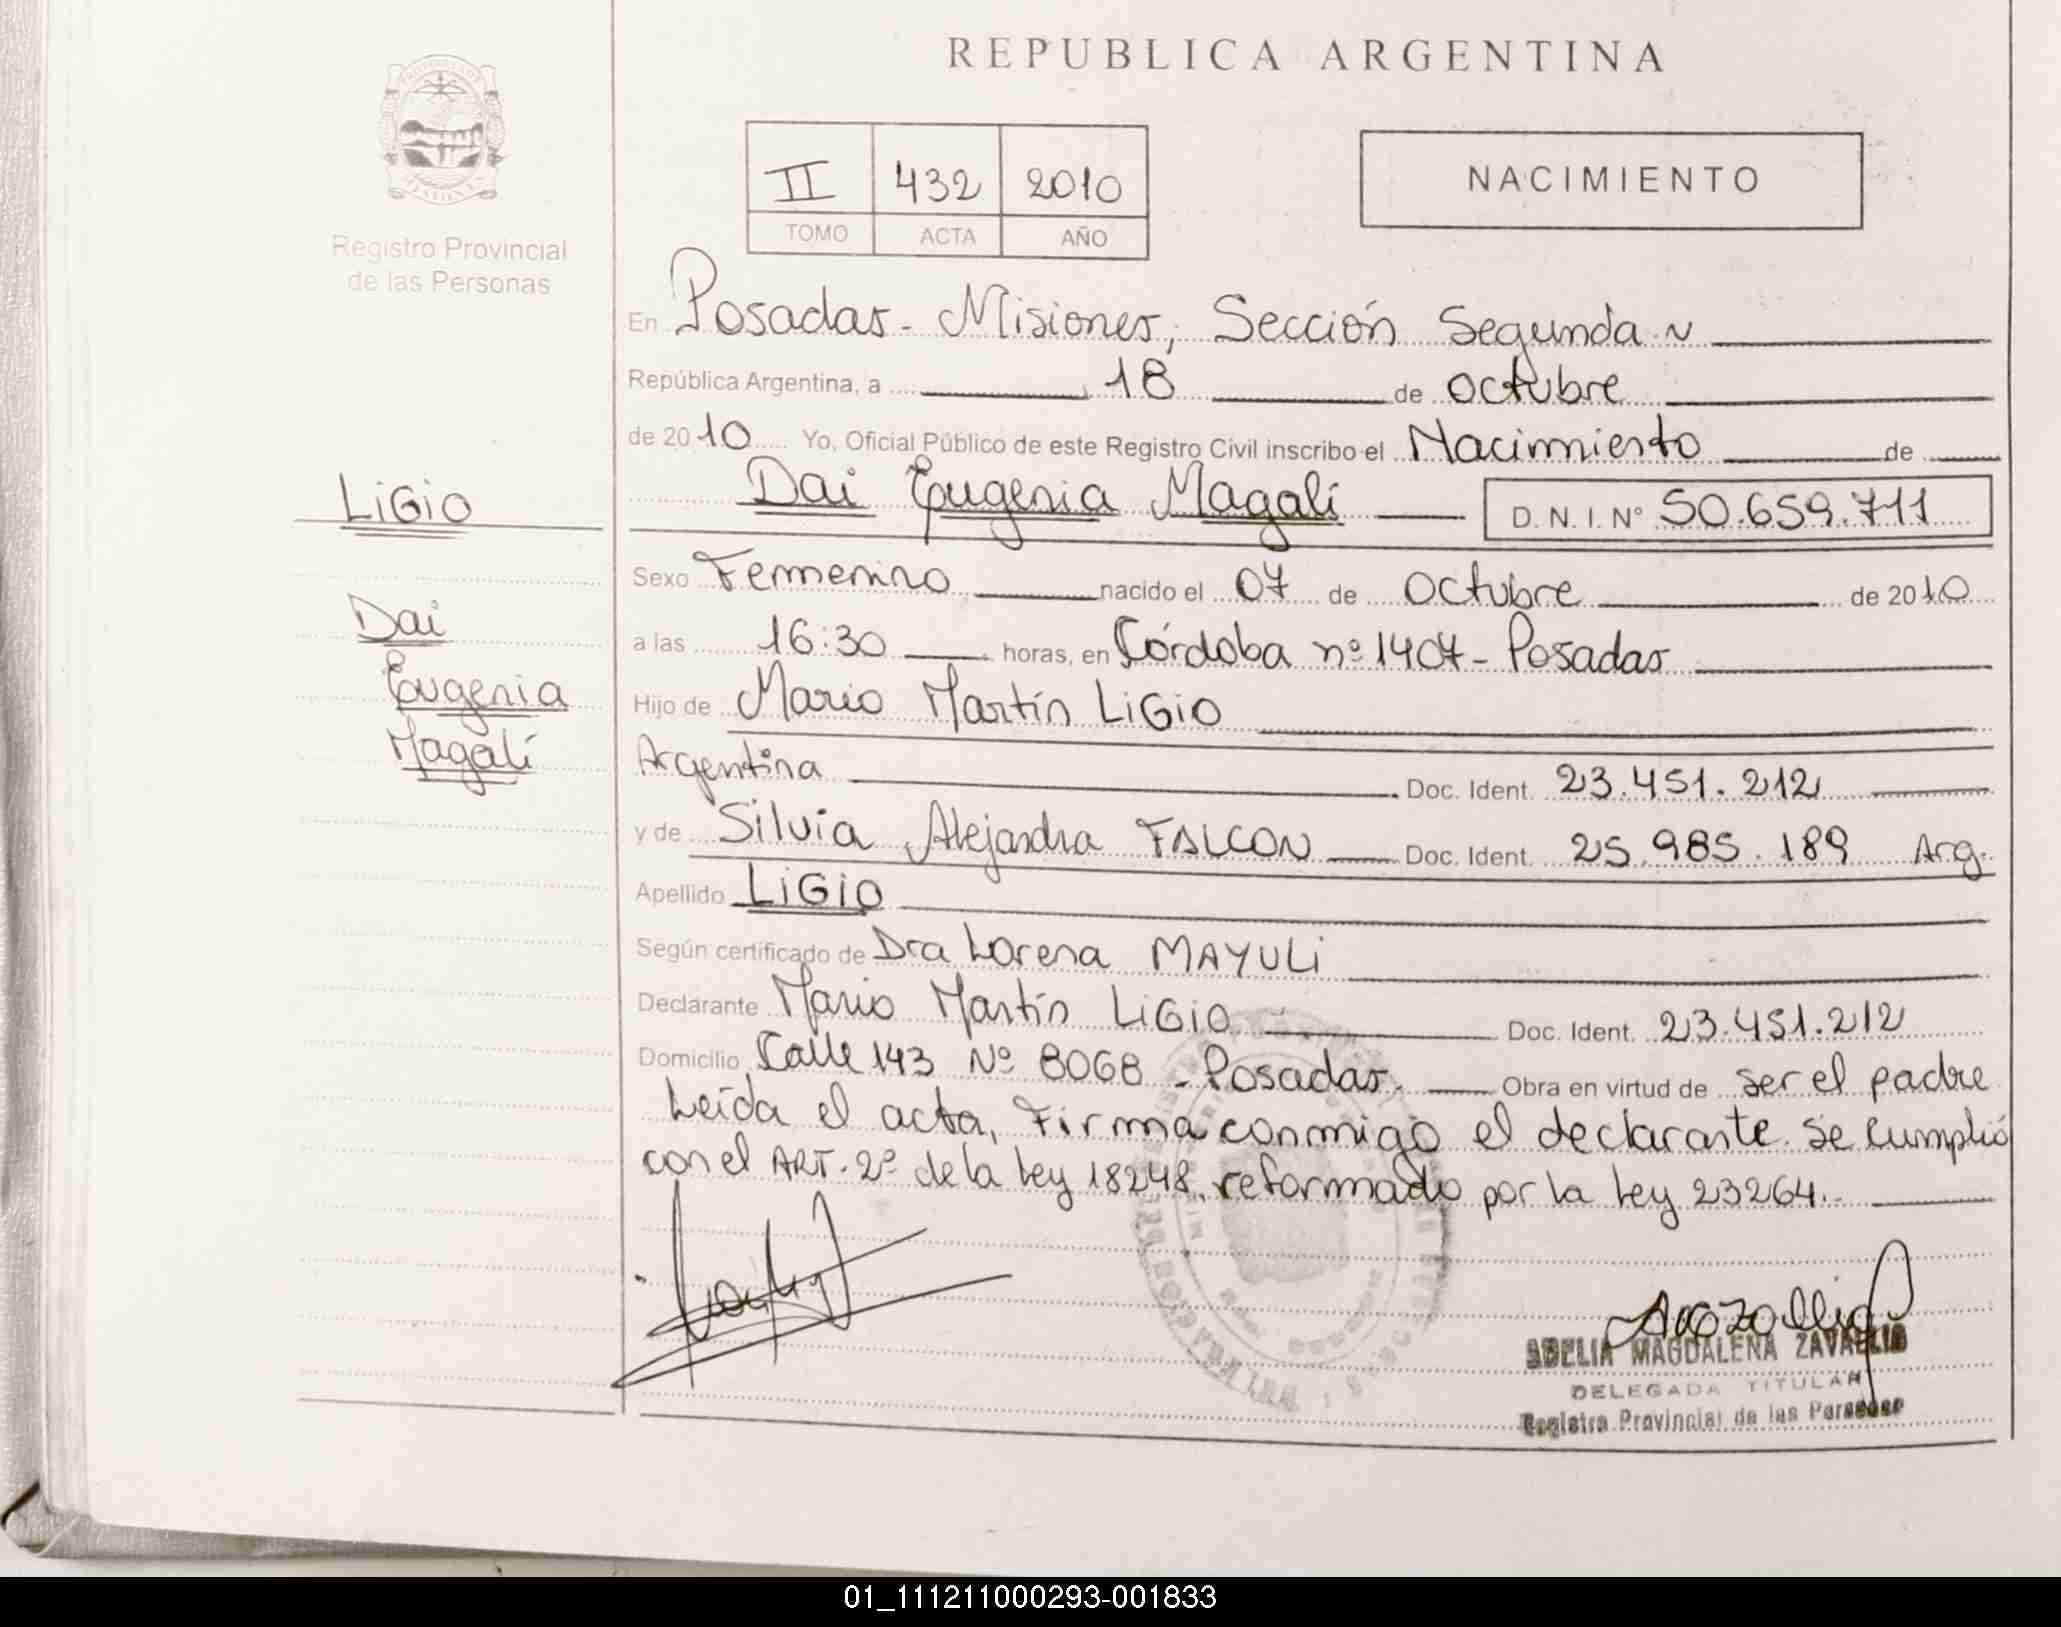 REPUBLICA ARGENTINA
Registro Provincial
de las Personas
II 432 2010
TOMO ACTA AÑO
NACIMIENTO
En Posadas - Misiones, Sección Segunda
República Argentina, a 18 de Octubre
de 2010 Yo, Oficial Público de este Registro Civil inscribo el Nacimiento de
Dai Eugenia Magalí D. N. I. Nº 50.659.711
LiGio
Dai
Eugenia
Magalí
Sexo Femenino nacido el 07 de Octubre de 2010
a las 16:30 horas, en Córdoba nº 1407 - Posadas
Hijo de Mario Martín LiGio
Argentina Doc. Ident. 23.451.212
y de Silvia Alejandra FALCON Doc. Ident. 25.985.189 Arg.
Apellido LiGio
Según certificado de Dra Lorena MAYULi
Declarante Mario Martín LiGio Doc. Ident. 23.451.212
Domicilio Calle 143 Nº 8068 - Posadas. Obra en virtud de ser el padre
Leída el acta, Firma conmigo el declarante. Se cumplió
con el ART. 2º de la Ley 18248, reformado por la Ley 23264.
ADELIA MAGDALENA ZAVALLIO
DELEGADA TITULAR
Registro Provincial de las Personas
01_111211000293-001833